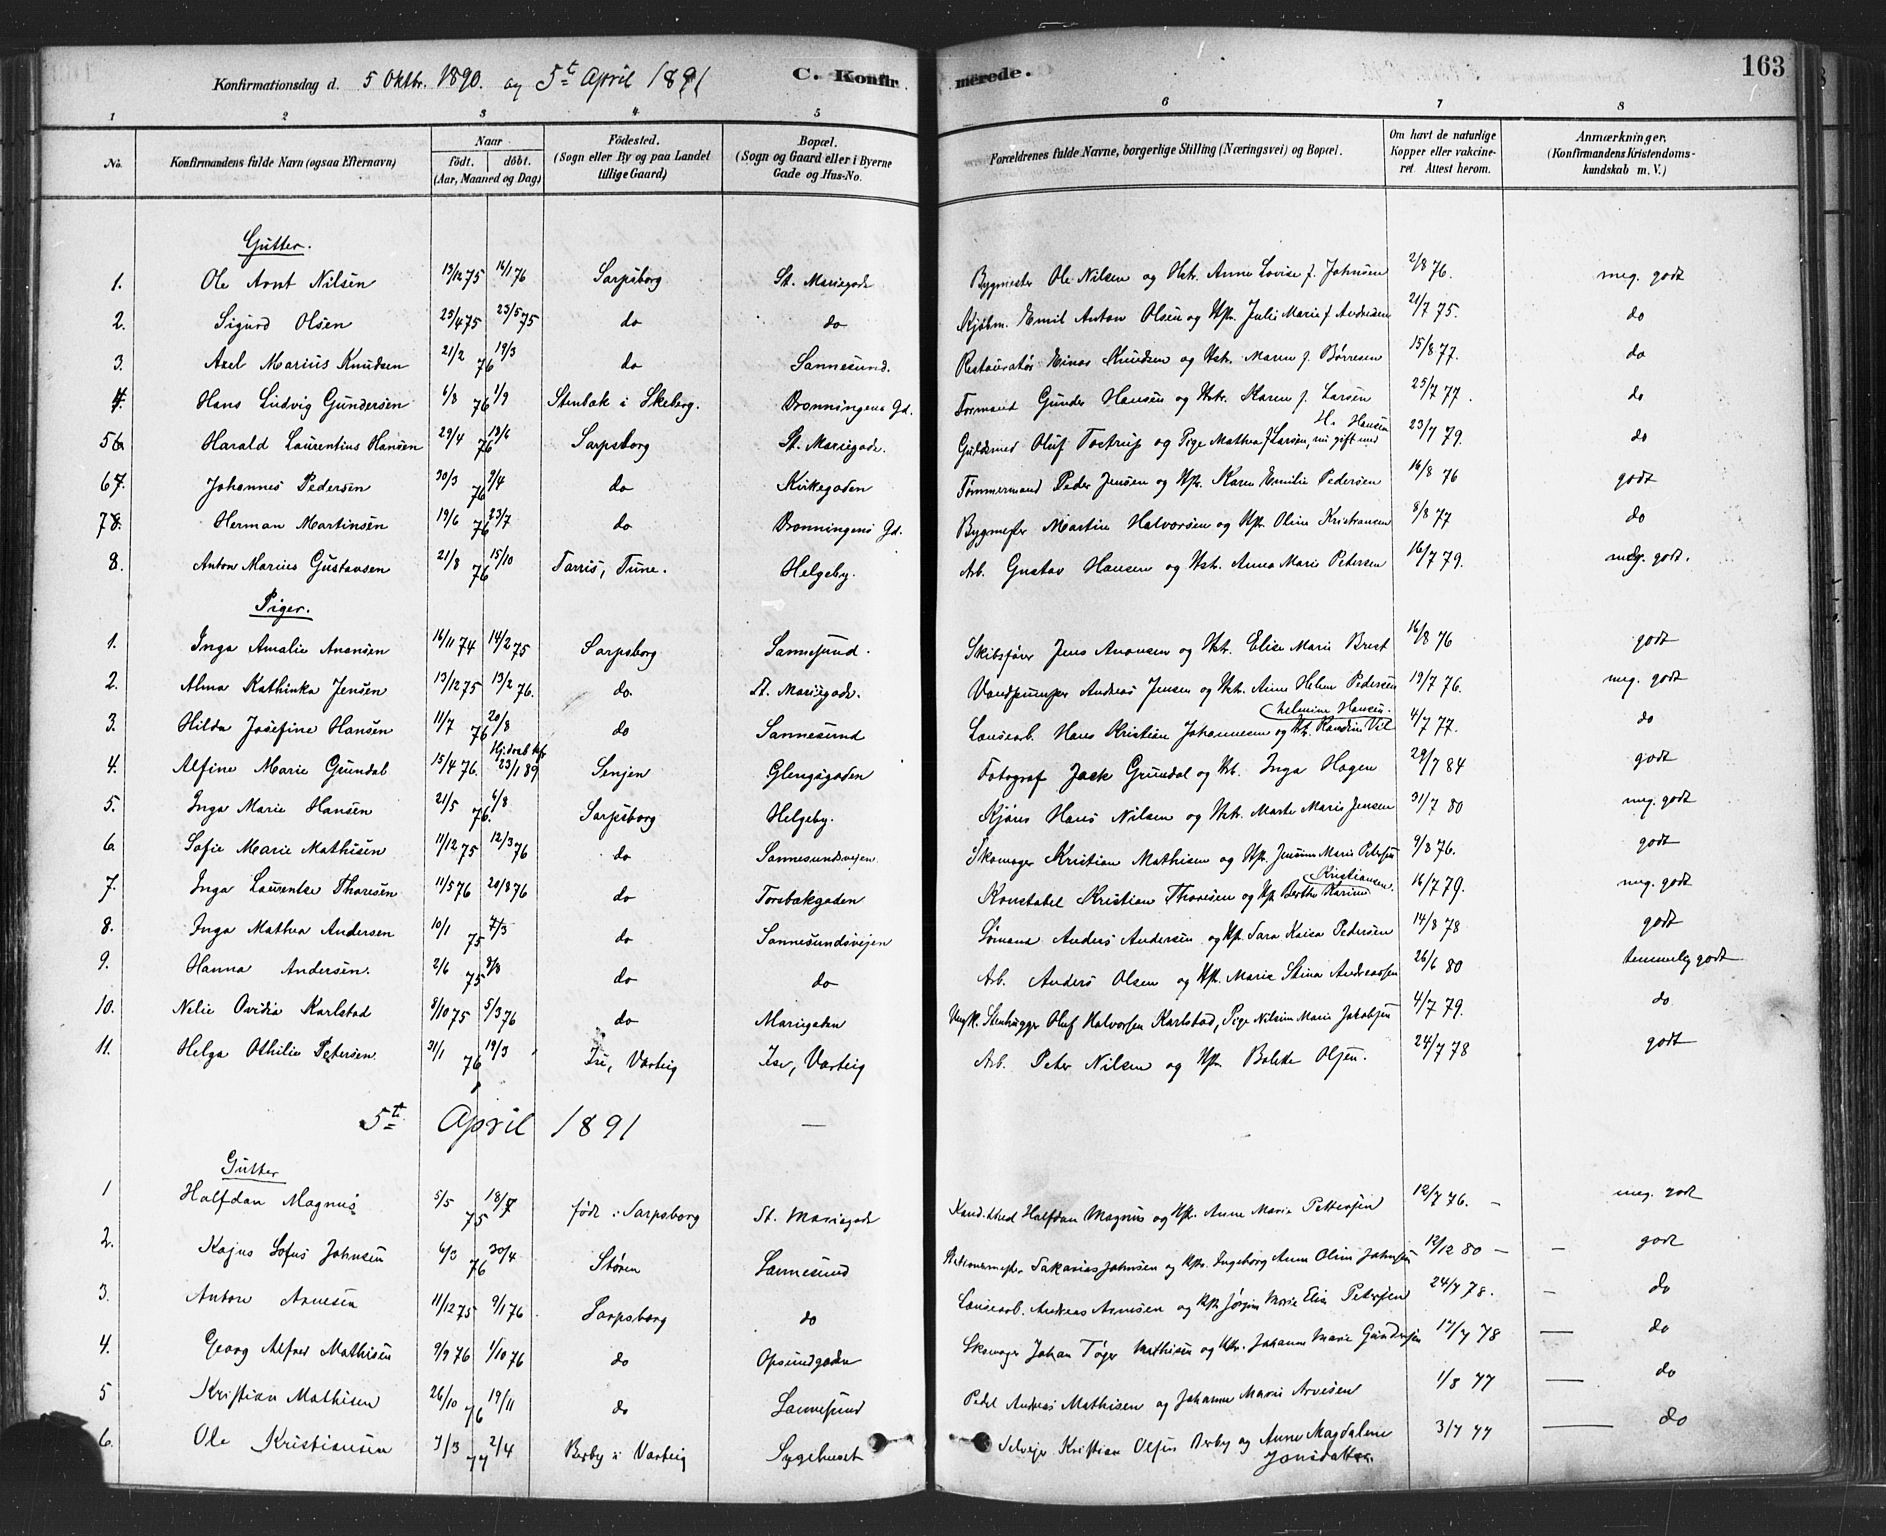 163
Konfirmationsdag d. 5 Oktbr. 1890. og 5te April 1891 C. Konfirmerede.
1 2 3 4 5 6 7 8
No. Konfirmandens fulde Navn (ogsaa Efternavn) Naar født. døbt. (Aar, Maaned og Dag) Fødested. (Sogn eller By og paa Landet tillige Gaard) Bopæl. (Sogn og Gaard eller i Byerne Gade og Hus-No. Forældrenes fulde Navne, borgerlige Stilling (Næringsvei) og Bopæl. Om havt de naturlige Kopper eller vakcineret. Attest herom. Anmærkninger, (Konfirmandens Kristendomskundskab m. V.)
Gutter.
1. Ole Arnt Nilsen 13/12 75 16/1 76 Sarpsborg St. Mariegade Bygmester Ole Nilsen og Hstr. Anne Lovise f. Johnsen 2/8 76. meg. godt
2. Sigurd Olsen 25/4 75 23/5 75 do do Kjøbm. Emil Anton Olsen og Hstr. Julie Marie f. Andresen 21/7 75. do
3. Axel Marius Knudsen 21/2 76 19/3 do Sannesund. Restauratør Einar Knudsen og Hstr. Maren f. Børresen 15/8 77. do
4. Hans Ludvig Gundersen 6/8 76 1/9 Stenbæk i Skeberg. Bronningens Gd. Formand Gunder Hansen og Hstr. Karen f. Larsen 25/7 77. do
5 Harald Laurentius Hansen 29/4 76 18/6 Sarpsborg St. Mariegade. Guldsmed Oluf Tostrup og Pige Mathea f Larsen, nu gift med H. Hansen 23/7 79. do
6 Johannes Pedersen 30/3 76 9/4 do Kirkegaden Tømmermand Peder Jensen og Hstr. Karen Emilie Pedersen 16/8 76 godt
7 Herman Martinsen 19/6 76 23/7 do Bronningens Gd. Bygmester Martin Halvorsen og Hstr. Oline Kristiansen 8/8 77 do
8. Anton Marius Gustavsen 21/8 76 15/10 Tarris, Tune. Helgeby. Arb. Gustav Hansen og Hstr. Anna Marie Petersen 16/7 79. meg. godt.
Piger.
1. Inga Amalie Anonsen 16/11 74 14/2 75 Sarpsborg Sannesund. Skibsfører Jens Anonsen og Hstr. Elise Marie Brest 16/8 76 godt
2. Alma Kathinka Jensen 13/12 75 13/2 76. do. St. Mariegade. Vandpumper Andreas Jensen og Hstr. Anne Helene Pedersen 19/7 76. meg. godt
3. Hilda Josefine Hansen 11/7 76 20/8 do Sannesund Lansearb. Hans Kristian Johannesen og Hstr. Randine Vilhelmine Hansen. 4/7 77. do
4. Alfine Marie Grundal 15/4 76. Hj.døb bkf 23/1 89 Senjen Glengsgaden Fotograf Jack Grundal og Hstr. Inga Hagen 29/7 84 godt
5. Inga Marie Hansen 21/5 76. 6/8 Sarpsborg Helgeby. Kjører Hans Nilsen og Hstr. Marte Marie Jensen 31/7 80 meg. godt
6. Sofie Marie Mathisen 11/12 75 12/3 76 do Sannesundsvejen Skomager Kristian Mathisen og Hstr. Jensine Marie Petersen 9/8 76. godt
7. Inga Loventse Thoresen 11/5 76 20/8 76 do Torsbækgaden Konstabel Kristian Thoresen og Hstr. Berthe Karine Kristiansen. 16/7 79. meg. godt
8. Inga Mathea Andersen 10/1 75 7/3 do Sannesundsvejen Sømand Anders Andersen og Hstr. Sara Kaisa Pedersen 14/8 78 godt
9. Hanna Andersen. 2/6 75 8/8 do do Arb. Anders Olsen og Hstr. Maria Stina Andreassen 26/6 80 temmelig godt
10. Nelie Ovidia Karlstad 8/10 75 5/3 76 do Mariegaden Ungk. Stenhugger Oluf Halvorsen Karlstad, Pige Nilsine Marie Jakobsen 4/7 79. do
11. Helga Othilie Petersen. 31/1 76 19/3 Ise, Varteig Ise, Varteig Arb. Peter Nilsen og Hstr. Bolette Olsen. 24/7 78 godt
5te April 1891 —
Gutter
1 Halfdan Magnus 5/5 75 18/7 født i Sarpsborg St. Mariegade Halfdan Magnus og Hstr. Anne Marie Pettersen 12/7 76. — meg. godt
2. Kajus Sofus Johnsen 6/3 76 30/4 Støren Sannesund Stationsmester Sakarias Johnsen og Hstr. Ingeborg Anne Oline Johnsen 12/12 80 — — godt
3. Anton Arnesen 11/12 75 9/1 76 Sarpsborg do Lansearb. Andreas Arnesen og Hstr. Jørgine Marie Elise Petersen 24/7 78. — do
4. Georg Alfred Mathisen 9/9 76 1/10 76 do Opsundgaden Skomager Johan Tøger Mathisen og Hstr. Johanne Marie Gundersen 17/7 78 — do
5 Kristian Mathisen 26/10 76 19/11 do Sannesund Pedel Andreas Mathisen og Johanne Marie Arvesen 1/8 77 — do
6. Ole Kristiansen 7/3 77 2/4 Berby i Varteig Sygehuset Selveje Kristian Olsen Berby og Anne Magdalene Jonsdatter. 3/7 77 — do